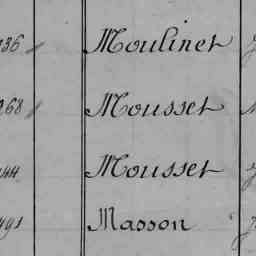 236 Moulinet
268 Mousset
244 Mousset
491 Masson